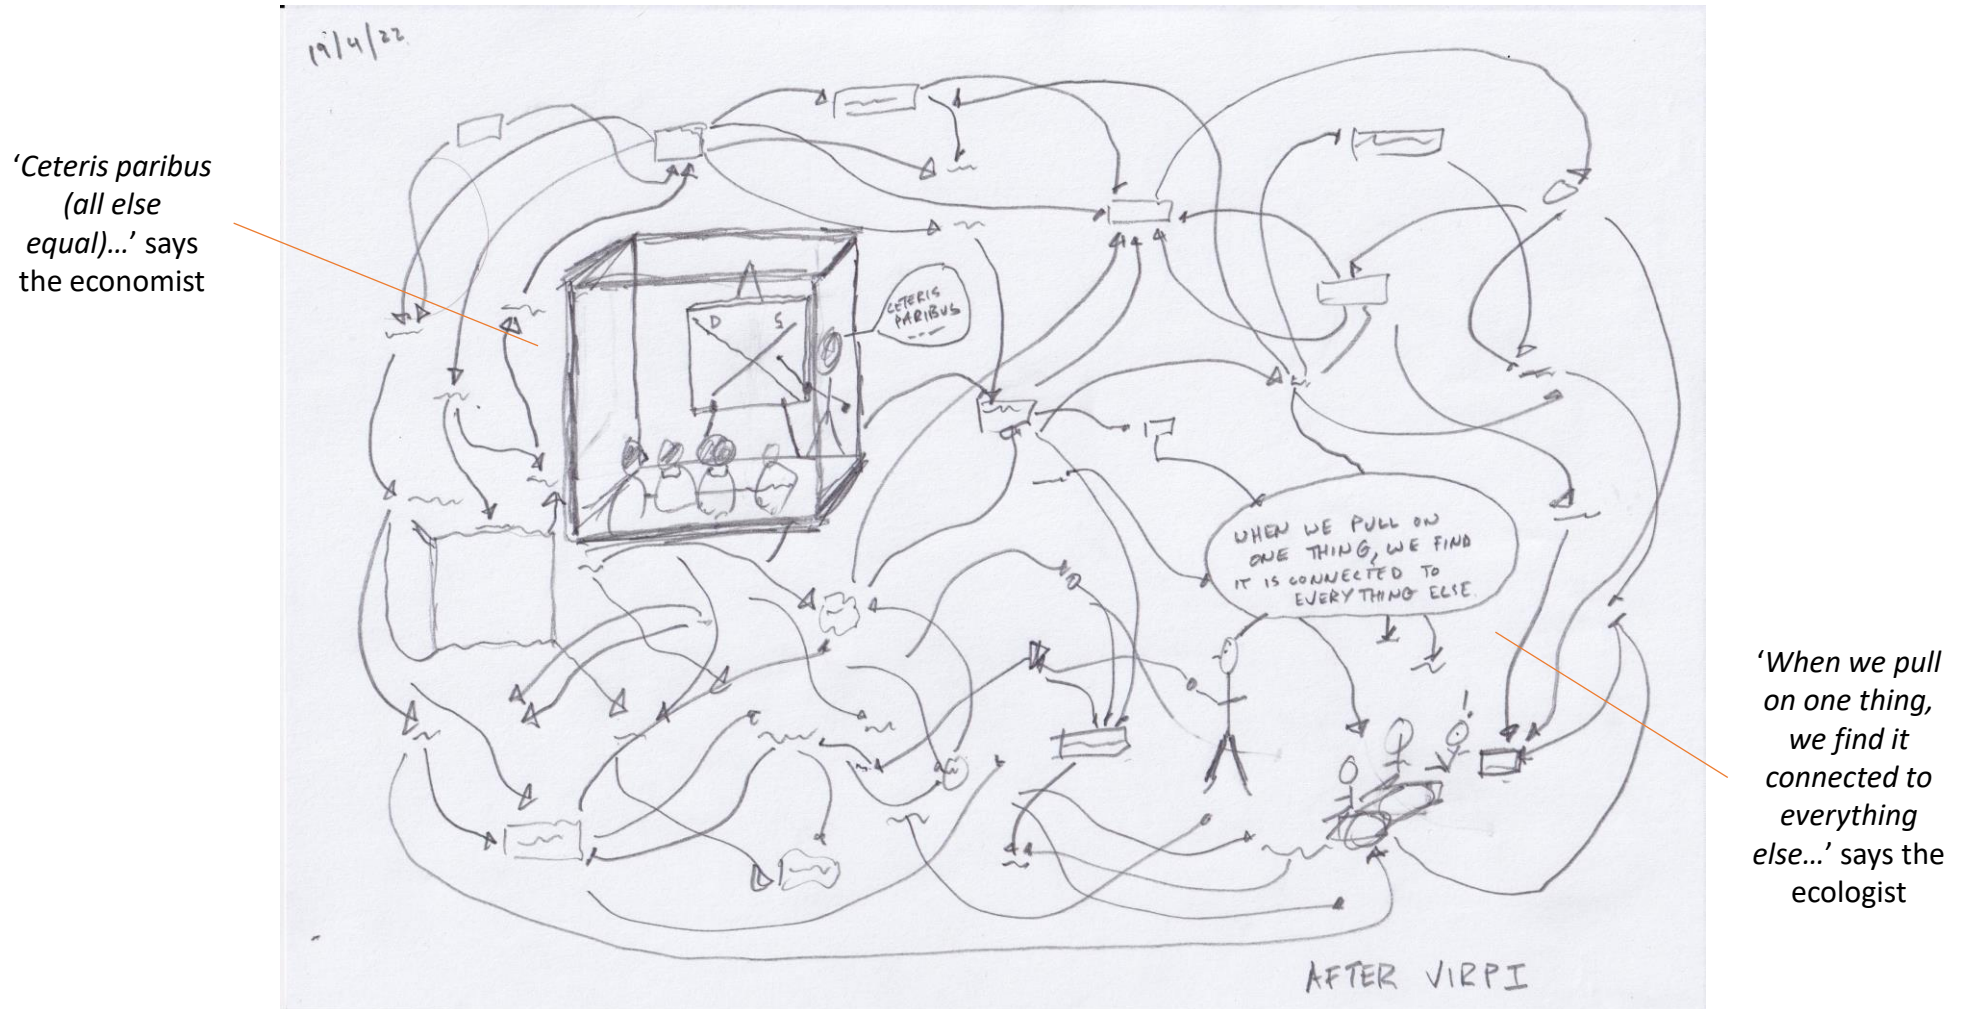 19/4/22
‘Ceteris paribus
(all else
equal)…’ says
the economist
D S
CETERIS
PARIBUS
WHEN WE PULL ON
ONE THING, WE FIND
IT IS CONNECTED TO
EVERYTHING ELSE.
‘When we pull
on one thing,
we find it
connected to
everything
else…’ says the
ecologist
!
AFTER VIRPI